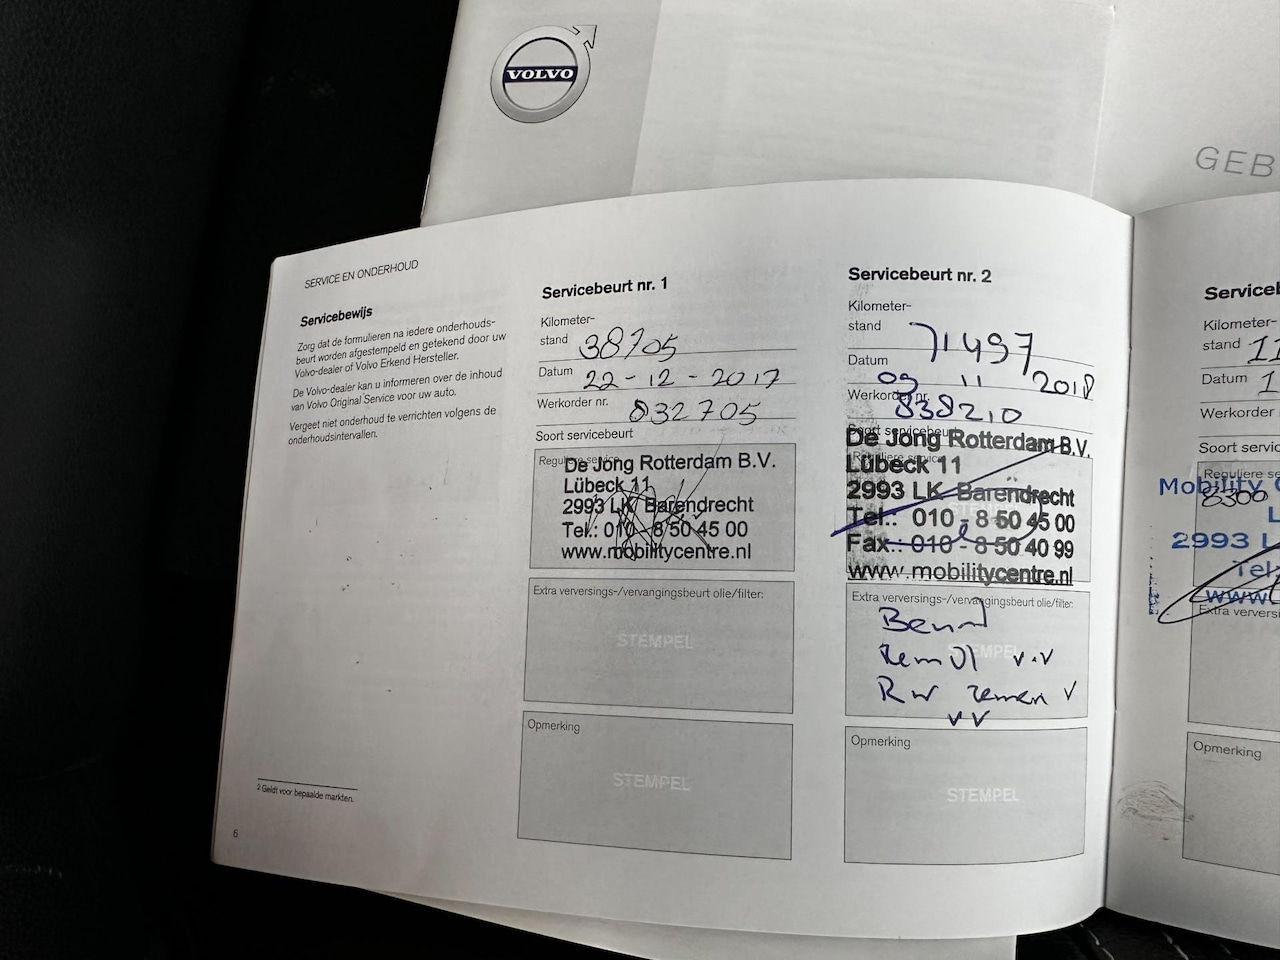 VOLVO
GEB
SERVICE EN ONDERHOUD
Servicebewijs
Zorg dat de formulieren na iedere onderhouds-
beurt worden afgestempeld en getekend door uw
Volvo-dealer of Volvo Erkend Hersteller.
De Volvo-dealer kan u informeren over de inhoud
van Volvo Original Service voor uw auto.
Vergeet niet onderhoud te verrichten volgens de
onderhoudsintervallen.
2 Geldt voor bepaalde markten.
6
Servicebeurt nr. 1
Kilometer-
stand 38705
Datum 22-12-2017
Werkorder nr. 832705
Soort servicebeurt
Reguliere service
De Jong Rotterdam B.V.
Lübeck 11
2993 LK Barendrecht
Tel.: 010 - 8 50 45 00
www.mobilitycentre.nl
Extra verversings-/vervangingsbeurt olie/filter:
STEMPEL
Opmerking
STEMPEL
Servicebeurt nr. 2
Kilometer-
stand 71497
Datum 09 11 2018
Werkorder nr. 838210
Soort servicebeurt
Reguliere service
De Jong Rotterdam B.V.
Lübeck 11
2993 LK Barendrecht
Tel.: 010 - 8 50 45 00
Fax.: 010 - 8 50 40 99
www.mobilitycentre.nl
Extra verversings-/vervangingsbeurt olie/filter:
STEMPEL
v.v
Rw remen v
v v
Opmerking
STEMPEL
Service
Kilometer-
stand 11
Datum 1
Werkorder
Soort servi
Reguliere
8300
Mobility
L
2993 L
Tel
www.
Extra versversi
Opmerking